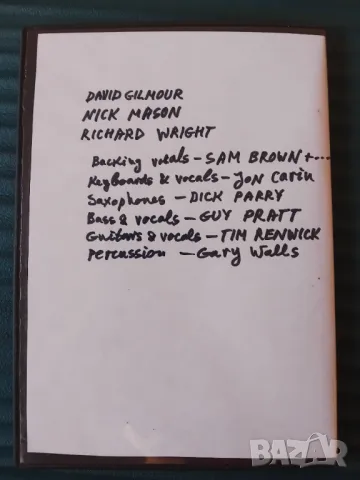 DAVID GILMOUR
NICK MASON
RICHARD WRIGHT
Backing vocals - SAM BROWN + ...
Keyboards & vocals - JON Carin
Saxophones - DICK PARRY
Bass & vocals - GUY PRATT
Guitars & vocals - TIM RENWICK
Percussion - Gary Walls
BAZAR